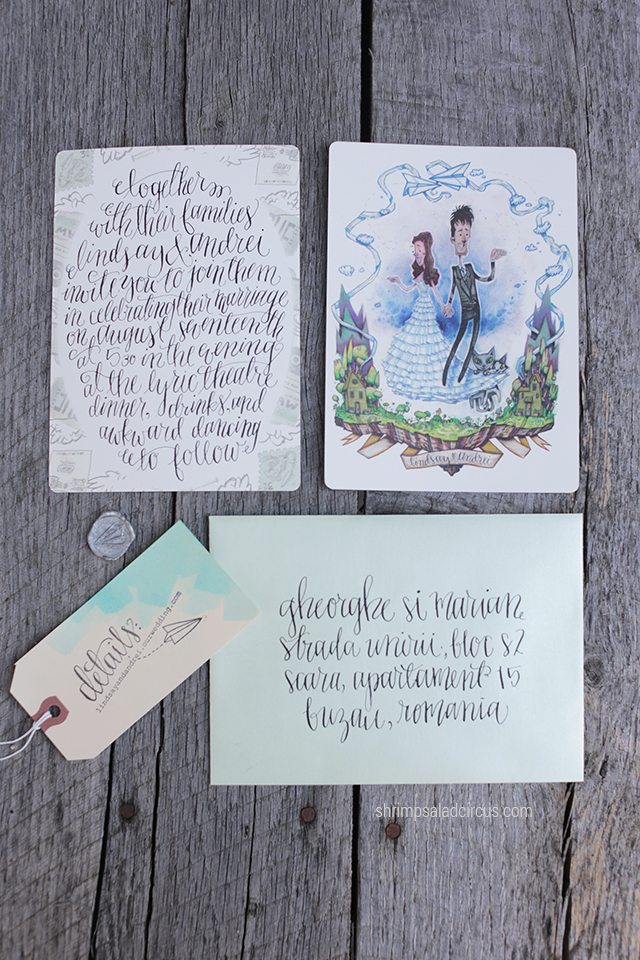 together
with their families
lindsay & andrei
invite you to join them
in celebrating their marriage
on august seventeenth
at 5:30 in the evening
at the lyric theatre
dinner, drinks, and
awkward dancing
to follow
lindsay & andrei
details:
lindsayandandrei.ourwedding.com
gheorghe si marian
strada unirii, bloc s2
scara, apartament 15
buzau, romania
shrimpsaladcircus.com